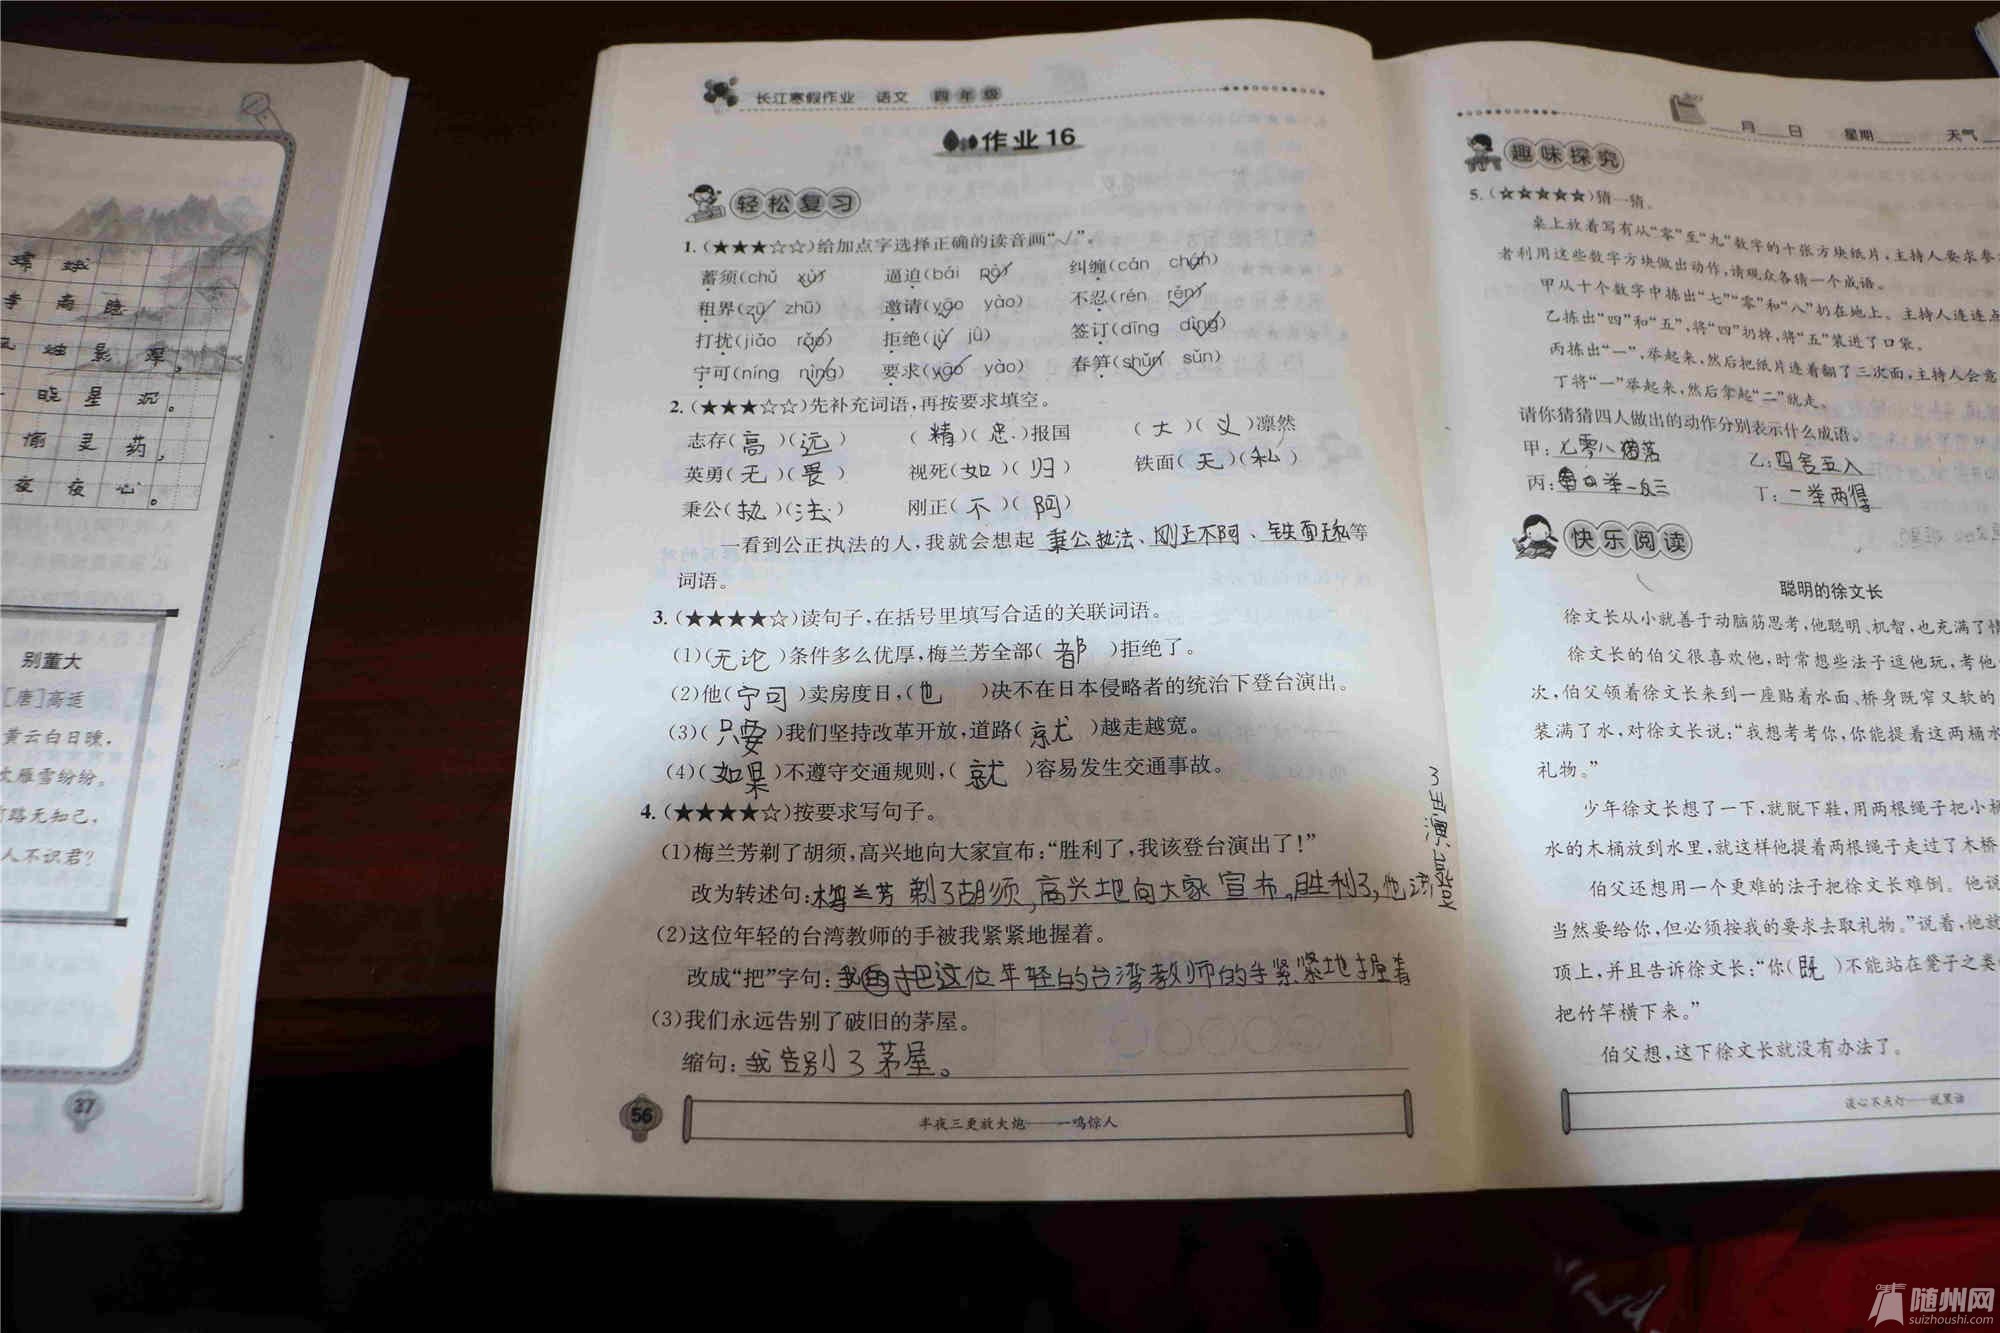 嫦娥
寺南隐
烛影深,
晓星沉。
偷灵药,
夜夜心。
别董大
[唐]高适
黄云白日曛,
雁雪纷纷。
路无知己,
人不识君?
37
长江寒假作业 语文 四年级
作业16
轻松复习
1.(★★★☆☆)给加点字选择正确的读音画“√”。
蓄须(chǔ xù) 逼迫(bái pò) 纠缠(cán chán)
租界(zū zhū) 邀请(yāo yào) 不忍(rén rěn)
打扰(jiǎo rǎo) 拒绝(jù jǔ) 签订(dīng dìng)
宁可(níng nìng) 要求(yāo yào) 春笋(shǔn sǔn)
2.(★★★☆☆)先补充词语,再按要求填空。
志存(高)(远) (精)(忠)报国 (大)(义)凛然
英勇(无)(畏) 视死(如)(归) 铁面(无)(私)
秉公(执)(法) 刚正(不)(阿)
一看到公正执法的人,我就会想起 秉公执法、刚正不阿、铁面无私等
词语。
3.(★★★★☆)读句子,在括号里填写合适的关联词语。
(1)(无论)条件多么优厚,梅兰芳全部(都)拒绝了。
(2)他(宁可)卖房度日,(也)决不在日本侵略者的统治下登台演出。
(3)(只要)我们坚持改革开放,道路(就)越走越宽。
(4)(如果)不遵守交通规则,(就)容易发生交通事故。
4.(★★★★☆)按要求写句子。
(1)梅兰芳剃了胡须,高兴地向大家宣布:“胜利了,我该登台演出了!”
改为转述句:梅兰芳剃了胡须,高兴地向大家宣布。胜利了,他该登台演出了
(2)这位年轻的台湾教师的手被我紧紧地握着。
改成“把”字句:我把这位年轻的台湾教师的手紧紧地握着
(3)我们永远告别了破旧的茅屋。
缩句:我告别了茅屋。
56
半夜三更放大炮——一鸣惊人
月 日 星期 天气
趣味探究
5.(☆☆☆☆☆)猜一猜。
桌上放着写有从“零”至“九”数字的十张方块纸片,主持人要求参
者利用这些数字方块做出动作,请观众各猜一个成语。
甲从十个数字中拣出“七”“零”和“八”扔在地上。主持人连连点
乙拣出“四”和“五”,将“四”扔掉,将“五”装进了口袋。
丙拣出“一”,举起来,然后把纸片连着翻了三次面,主持人会意
丁将“一”举起来,然后拿起“二”就走。
请你猜猜四人做出的动作分别表示什么成语。
甲:七零八落 乙:四舍五入
丙:举一反三 丁:一举两得
快乐阅读
聪明的徐文长
徐文长从小就善于动脑筋思考,他聪明、机智,也充满了情
徐文长的伯父很喜欢他,时常想些法子逗他玩,考他
次,伯父领着徐文长来到一座贴着水面、桥身既窄又软的
装满了水,对徐文长说:“我想考考你,你能提着这两桶水
礼物。”
少年徐文长想了一下,就脱下鞋,用两根绳子把小桶
水的木桶放到水里,就这样他提着两根绳子走过了木桥
伯父还想用一个更难的法子把徐文长难倒。他说
当然要给你,但必须按我的要求去取礼物。”说着,他就
顶上,并且告诉徐文长:“你(既)不能站在凳子之类
把竹竿横下来。”
伯父想,这下徐文长就没有办法了。
谈心不点灯——说黑话
随州网
suizhoushi.com